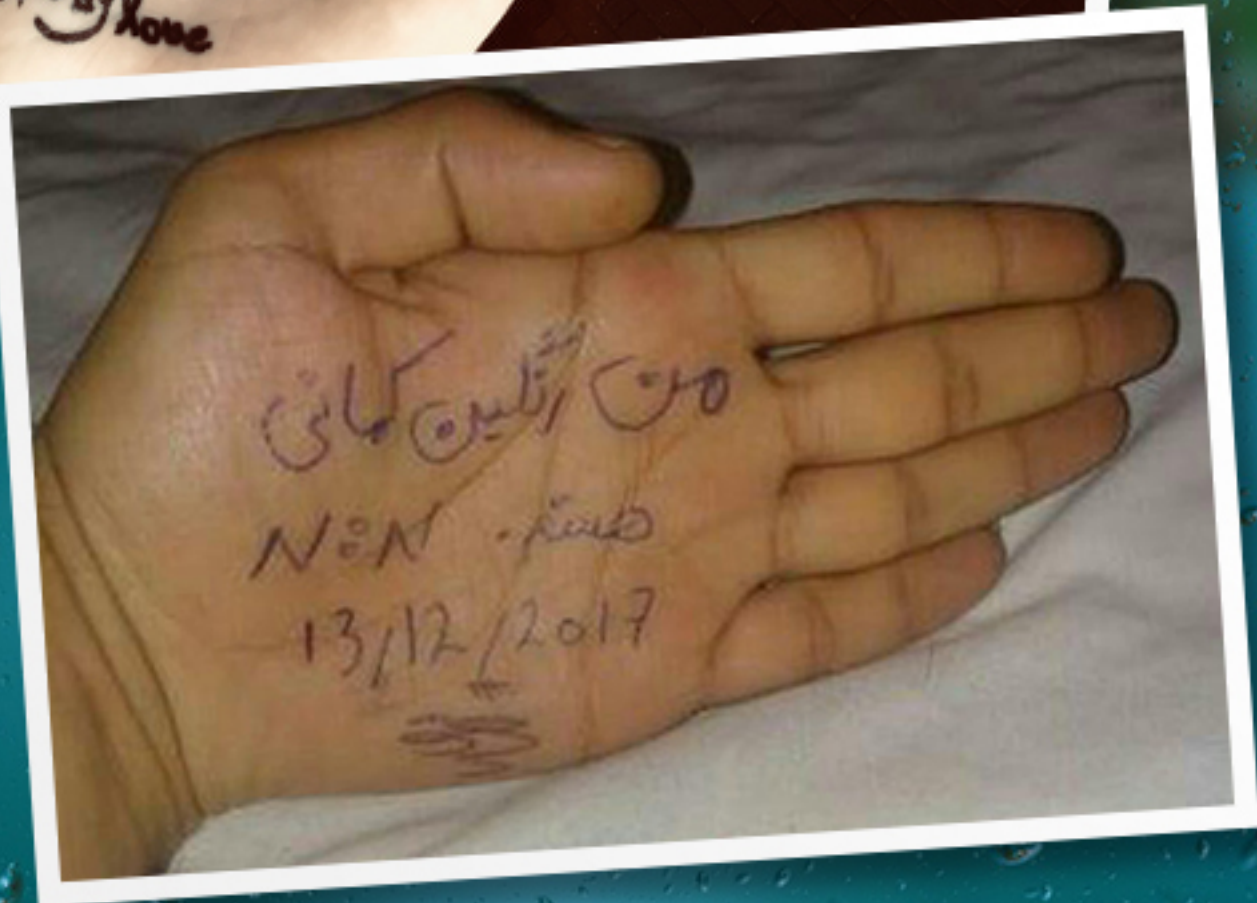 love
من رنگین کمانی
هستم.
13/12/2017